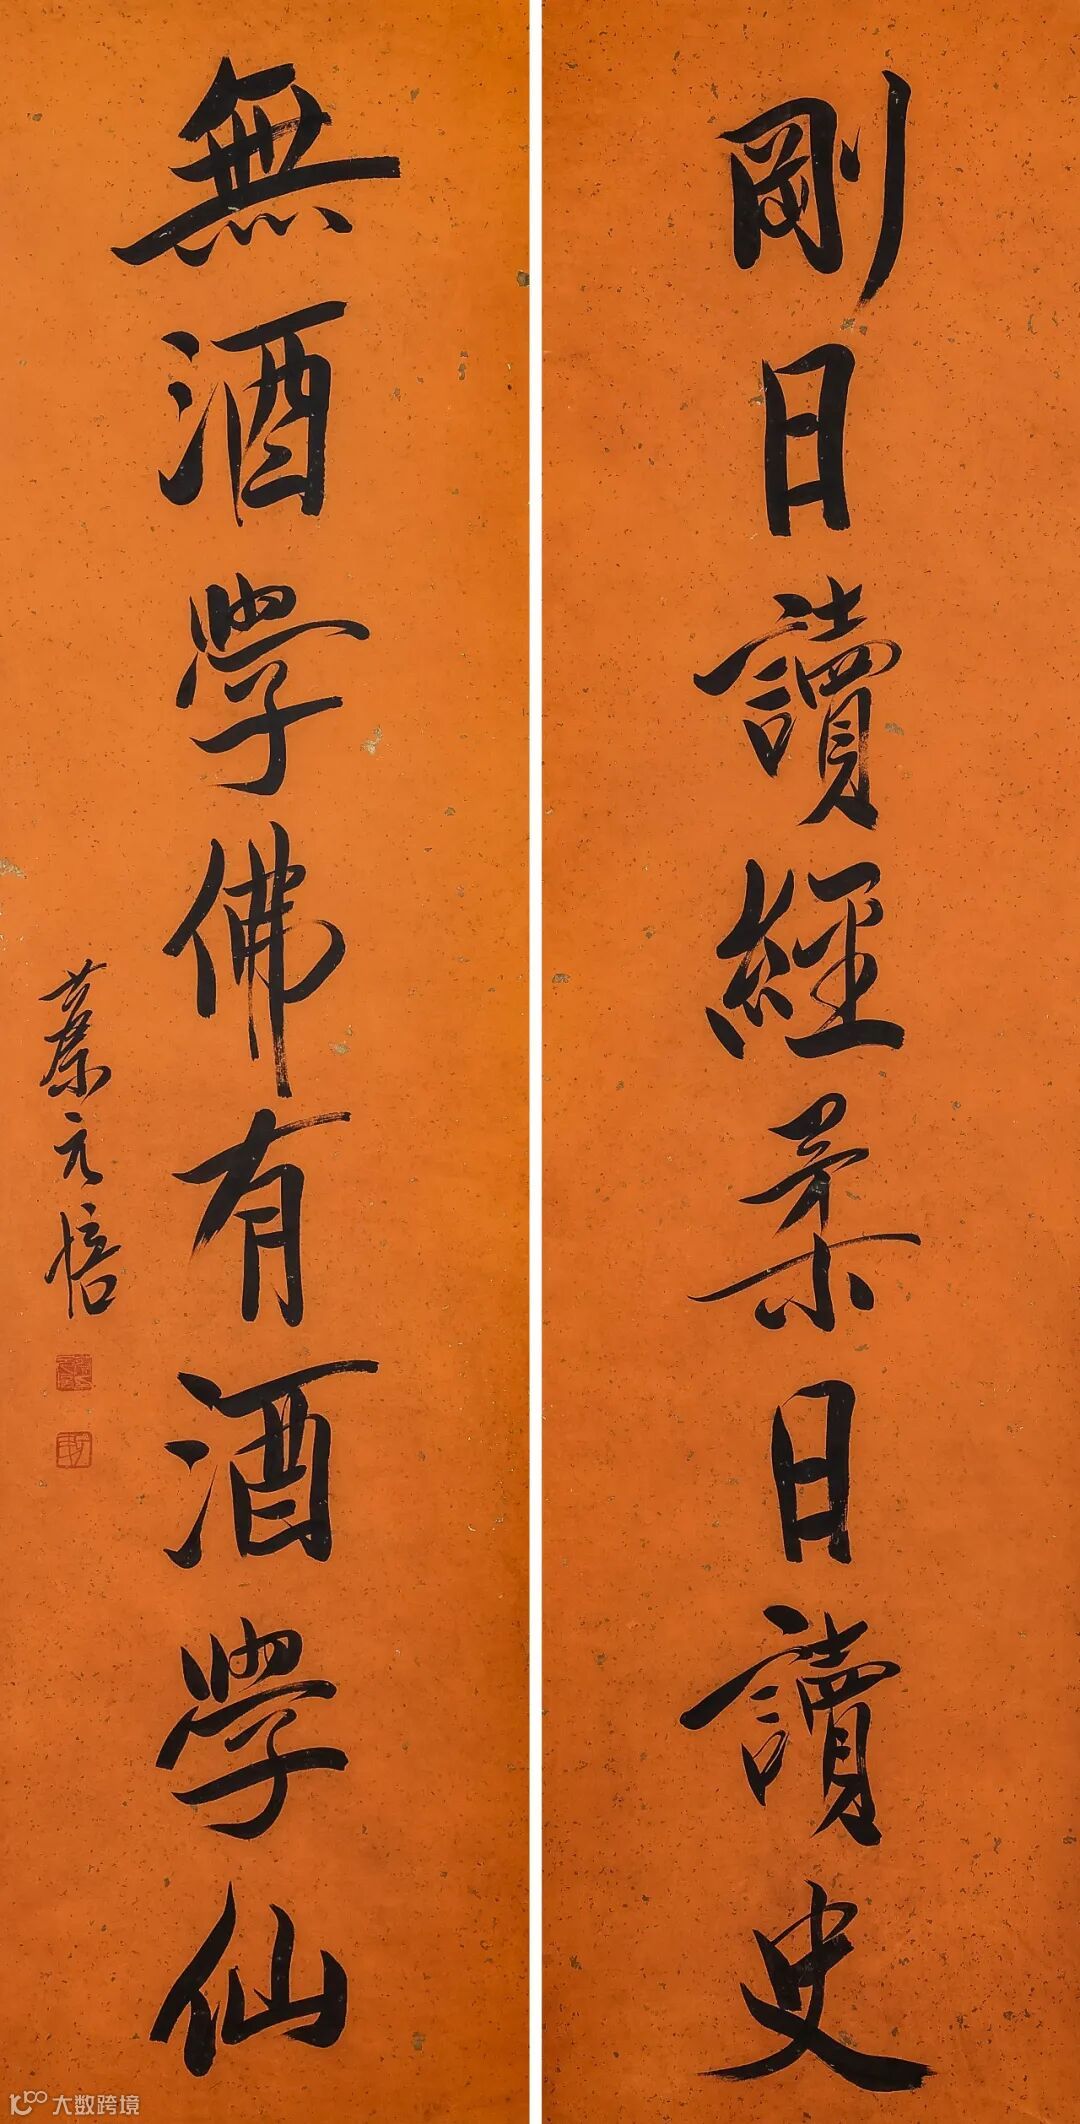 剛日讀經柔日讀史
無酒學佛有酒學仙
蔡元培
大数跨境